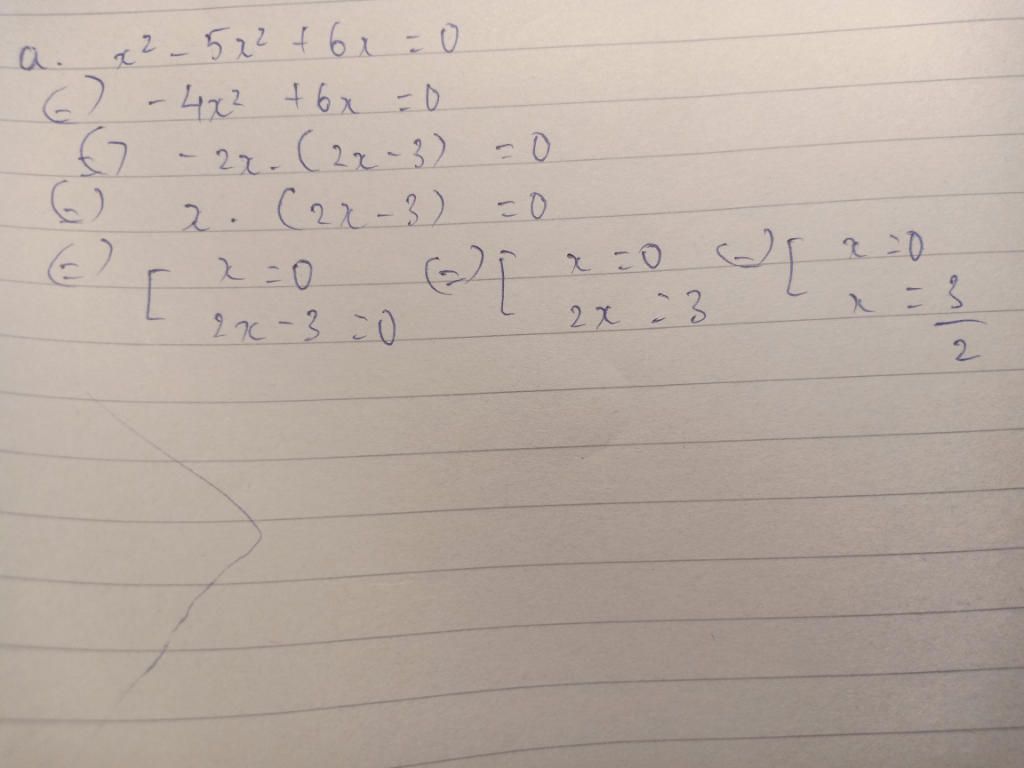 a. x² - 5x² + 6x = 0
(=) - 4x² + 6x = 0
(=) - 2x . (2x - 3) = 0
(=) x . (2x - 3) = 0
(=) [ x = 0 (=) [ x = 0 (=) [ x = 0
2x - 3 = 0 2x = 3 x = 3/2